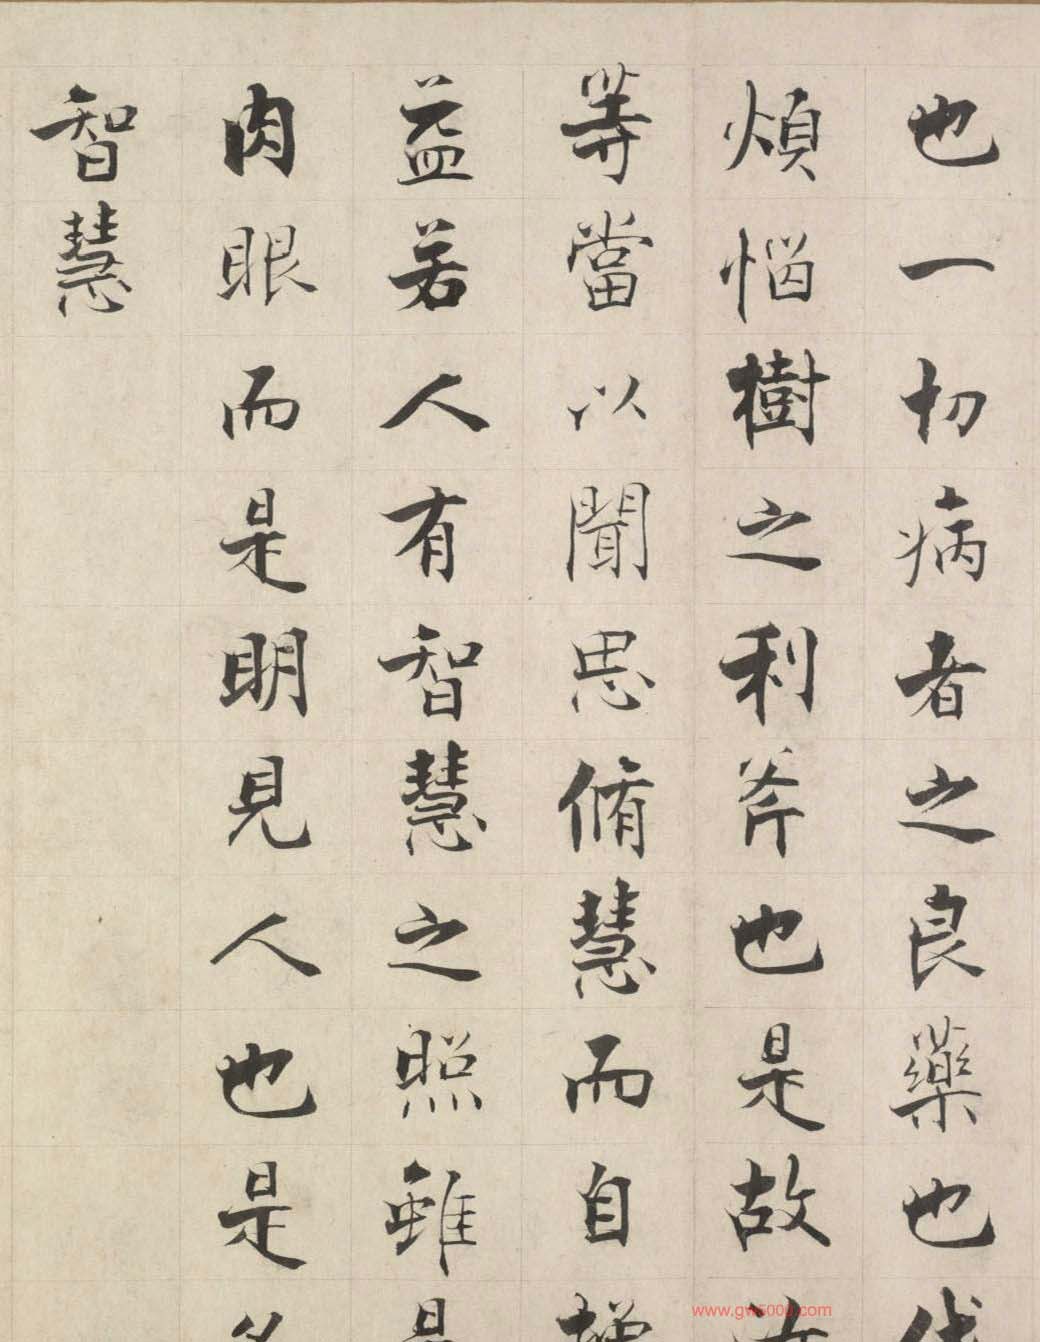 也一切病者之良藥也伐
煩惱樹之利斧也是故汝
等當以聞思脩慧而自增
益若人有智慧之照雖是
肉眼而是明見人也是名
智慧
www.gw5000.com